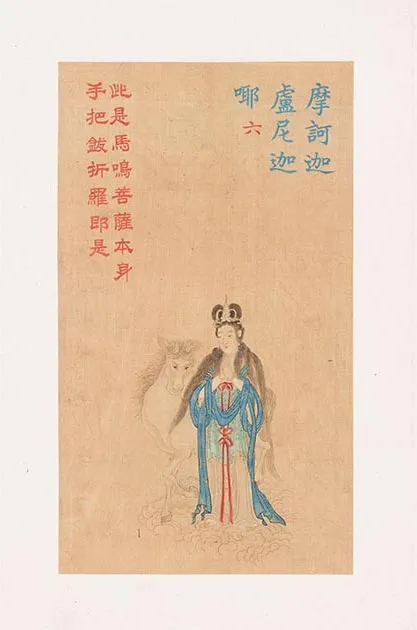 摩訶迦
盧尼迦
耶 六
此是馬鳴菩薩本身
手把鈸折羅即是